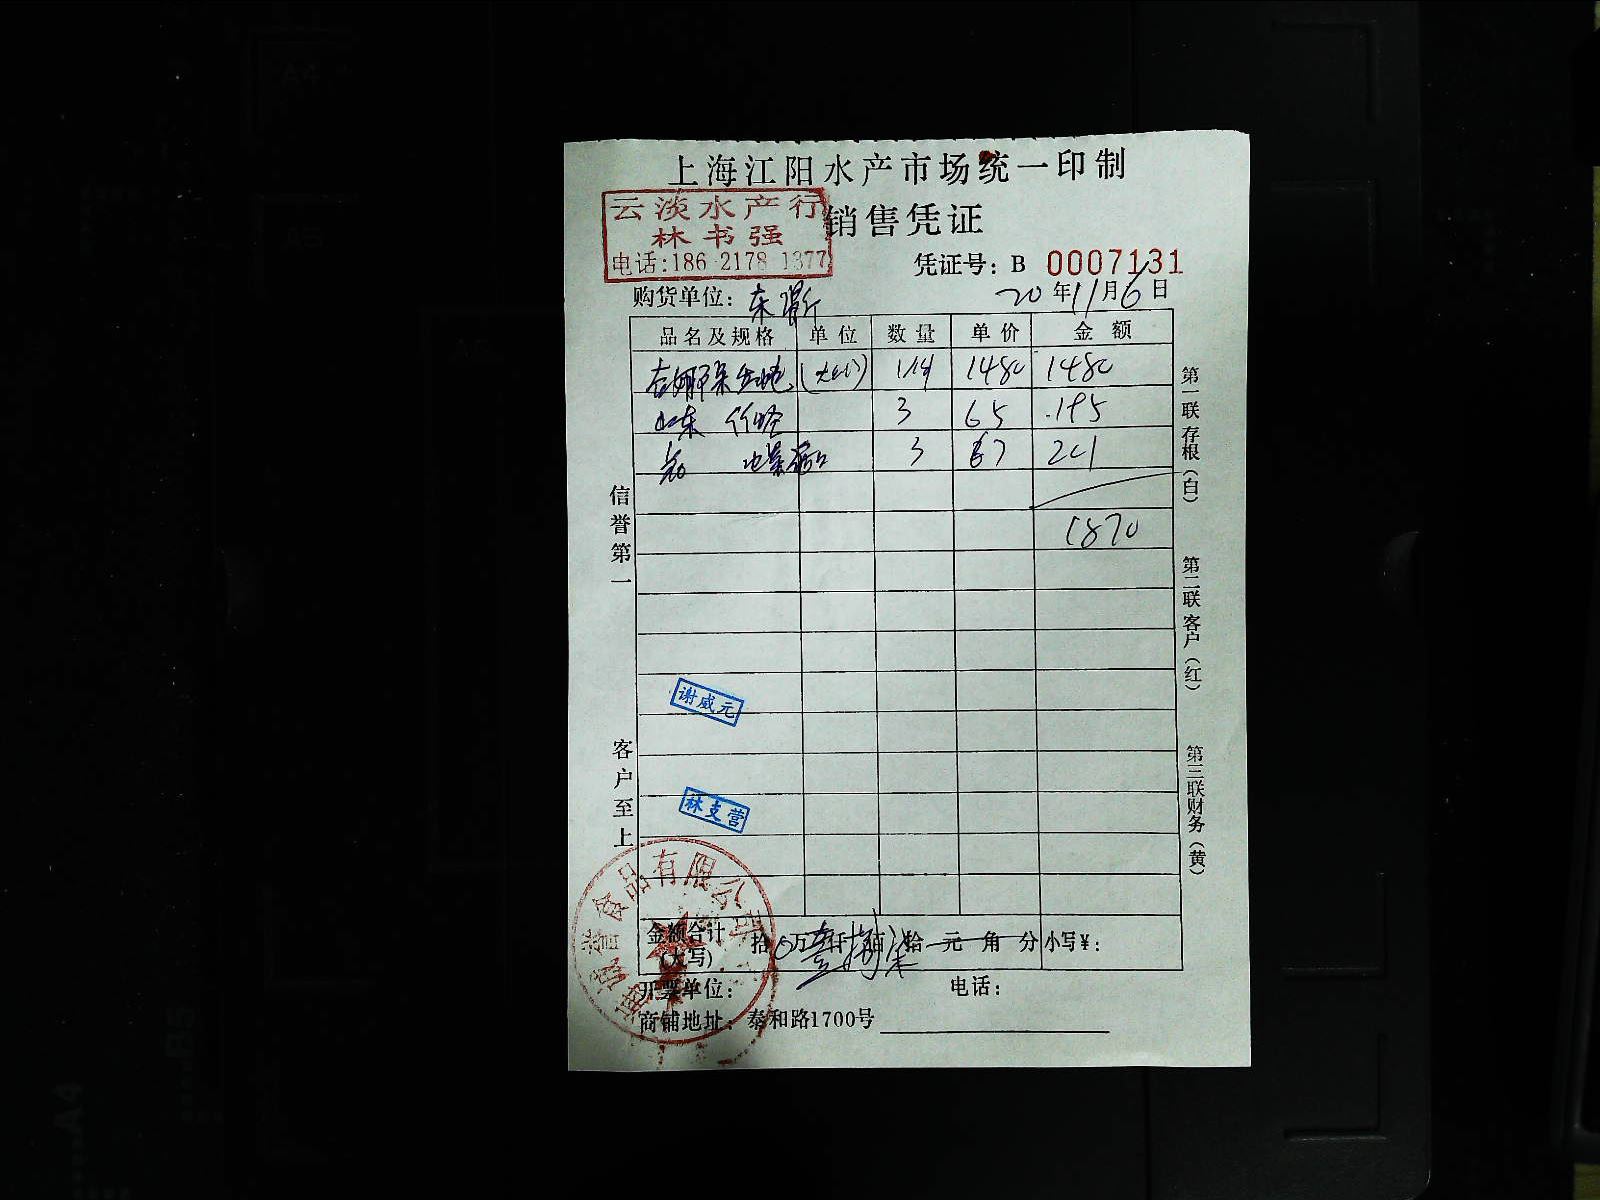 上海江阳水产市场统一印制
云淡水产行
林书强
电话:186 2178 1377
销售凭证
凭证号：B 0007131
购货单位：
20年11月6日
品名及规格 单位 数量 单价 金额
1480 1480
山东 3 65 195
3 67 201
1870
信誉第一
客户至上
第一联存根(白)
第二联客户(红)
第三联财务(黄)
谢威元
林支营
食品有限公司
金额合计(大写) 拾 万 仟 佰 拾 元 角 分 小写¥：
开票单位：
电话：
商铺地址：泰和路1700号
A4
B5